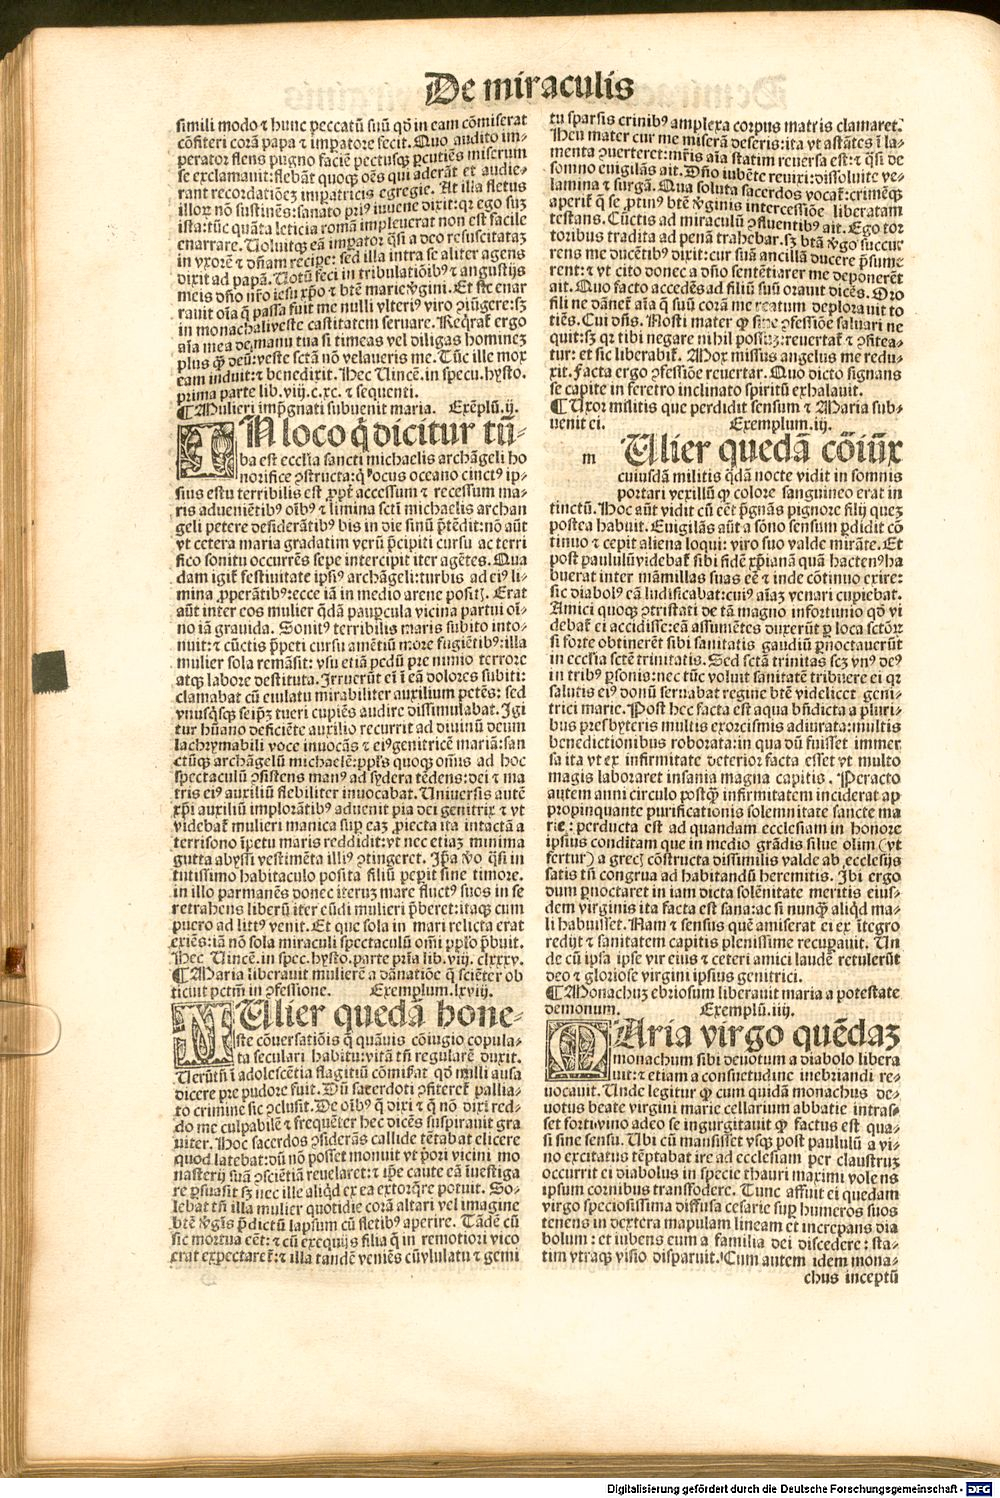 De miraculis
simili modo ⁊ hunc peccatū suū qd̄ in eam cōmiserat
cōfiteri corā papa ⁊ impatore fecit. Quo audito im-
perator flens pugno faciē pectusqꝫ pcutiēs miserum
se exclamauit: flebāt quoqꝫ oēs qui aderāt et audie-
rant recordatiōeꝫ impatricis egregie. At illa fletus
illoꝝ nō sustinēs: sanato priꝰ iuuene dixit: qꝛ ego suꝫ
ista: tūc quāta leticia romā impleuerat non est facile
enarrare. Uoluitqꝫ eā impator q̄si a deo resuscitataꝫ
in vxorē ⁊ dn̄am recipe: sed illa intra se aliter agens
dixit ad papā. Uotū feci in tribulatiōibꝰ ⁊ angustijs
meis dn̄o nr̄o iesu xp̄o ⁊ btē marie v̄gini. Et sic enar
rauit oīa q̄ passa fuit me nulli vlteriꝰ viro ꝯiūgere: sꝫ
in monachali veste castitatem seruare. Req̄rat̄ ergo
aīa mea de manu tua si timeas vel diligas homineꝫ
plus qꝫ deū: veste sctā nō velaueris me. Tūc ille mox
eam induit: ⁊ benedixit. Hec Uincē. in specu. hysto.
prima parte lib. viij. c. xc. ⁊ sequenti.
¶ Mulieri imp̄gnati subuenit maria. Exēplū. ij.
IN loco q̄ dicitur tū-
ba est ecclīa sancti michaelis archāgeli ho
norifice ꝯstructa: q̄ locus oceano cinctꝰ ip-
sius estu terribilis est ꝓpt̄ accessum ⁊ recessum ma-
ris aduenietībꝰ oībꝰ ⁊ limina scti michaelis archan
geli petere desiderātibꝰ bis in die sinū p̄tēdit: nō aūt
vt cetera maria gradatim veꝝ p̄cipiti cursu ac terri
fico sonitu occurrēs sepe intercipit iter agētes. Qua
dam igit̄ festiuitate ipsiꝰ archāgeli: turbis ad eiꝰ li-
mina ꝓperātibꝰ: ecce iā in medio arene positꝭ. Erat
aūt inter eos mulier q̄dā paupcula vicina partui oī-
no iā grauida. Sonitꝰ terribilis maris subito into-
nuit: ⁊ cūctis p̄peti cursu amētiū more fugiētibꝰ: illa
mulier sola remāsit: vsu etiā pedū pre nimio terrore
atqꝫ labore destituta. Irruerūt eī ī eā dolores subiti:
clamabat cū eiulatu mirabiliter auxilium petēs: sed
vnusq̄sqꝫ seipꝫ tueri cupiēs audire dissimulabat. Igi
tur hūano deficiēte auxilio recurrit ad diuinū deum
lachrymabili voce inuocās ⁊ eiꝰ genitricē mariā: san
ctūqꝫ archāgelū michaelē: ppls quoqꝫ omīs ad hoc
spectaculū ꝯsistens manꝰ ad sydera tēdens: dei ⁊ ma
tris eiꝰ auxiliū flebiliter inuocabat. Uniuersis autē
xp̄i auxiliū implorātibꝰ aduenit pia dei genitrix ⁊ vt
videbat̄ mulieri manica sup eaꝫ ꝓiecta ita intactā a
terrisono īpetu maris reddidit: vt nec etiaꝫ minima
gutta abyssi vestimēta illiꝰ ꝯtingeret. Ip̄a v̄o q̄si in
tutissimo habitaculo posita filiū pepit sine timore.
in illo parmanēs donec iteruꝫ mare fluctꝰ suos in se
retrahens liberū iter eūdi mulieri p̄beret: itaqꝫ cum
puero ad littꝰ venit. Et que sola in mari relicta erat
exiēs: iā nō sola miraculi spectaculū omī pplo p̄buit.
Hec Uincē. in spec. hysto. parte prīa lib. viij. clxxxv.
¶ Maria liberauit mulierē a dānatiōe q̄ sciēter ob
ticuit pctm̄ in ꝯfessione. Exemplum. lxviij.
MUlier quedā hone-
ste cōuersatiōis q̄ quāuis cōiugio copula-
ta seculari habitu: vitā tn̄ regularē duxit.
Uerūtn̄ ī adolescētia flagitiū cōmiserat qd̄ nulli ausa
dicere pre pudore fuit. Dū sacerdoti ꝯfiteret̄ pallia-
to crimine sic ꝯclusit. De oībꝰ q̄ dixi ⁊ q̄ nō dixi red-
do me culpabilē ⁊ frequēter hec dicēs suspirauit gra
uiter. Hoc sacerdos ꝯsiderās callide tētabat elicere
quod latebat: dū nō posset monuit vt p̄ori vicini mo
nasterij suā ꝯsciētiā reuelaret: ⁊ ip̄e caute eā īuestiga
re psuasit sꝫ nec ille aliqd ex ea extorq̄re potuit. So-
lebat tn̄ illa mulier quotidie corā altari vel imagine
btē v̄gīs p̄dictū lapsum cū fletibꝰ aperire. Tādē cū
sic mortua eēt: ⁊ cū exequijs filia q̄ in remotiori vico
erat expectaret̄: ⁊ illa tandē veniēs cū vlulatu ⁊ gemi
tu sparsis crinibꝰ amplexa corpus matris clamaret.
Heu mater cur me miserā deseris: ita vt astātes ī la-
menta ꝯuerteret: mr̄is aīa statim reuersa est: ⁊ q̄si de
somno euigilās ait. Dn̄o iubēte reuixi: dissoluite ve-
lamina ⁊ surgā. Qua soluta sacerdos vocat̄: crimēqꝫ
aperit̄ q̄ se ꝓtinꝰ btē v̄ginis intercessiōe liberatam
testans. Cūctis ad miraculū ꝯfluentibꝰ ait. Ego tor
toribus tradita ad penā trahebar. sꝫ btā v̄go succur
rens me ducētibꝰ dixit: cur suā ancillā ducere p̄sume
rent: ⁊ vt cito donec a dn̄o sententiarer me deponerēt
ait. Quo facto accedēs ad filiū suū orauit dicēs. Oro
fili ne dānet̄ aīa q̄ suū corā me reatum deplorauit to
tiēs. Cui dn̄s. Nosti mater ꝙ sine ꝯfessiōe saluari ne
quit: sꝫ qꝛ tibi negare nihil possuꝫ: reuertat̄ ⁊ ꝯfitea-
tur: et sic liberabit̄. Mox missus angelus me redu-
xit. Facta ergo ꝯfessiōe reuertar. Quo dicto signans
se capite in feretro inclinato spiritū exhalauit.
¶ Uxor militis que perdidit sensum ⁊ Maria sub-
uenit ei. Exemplum. iij.
m Ulier quedā cōiūx
cuiusdā militis q̄dā nocte vidit in somnis
portari vexillū qꝫ colore sanguineo erat in
tinctū. Hoc aūt vidit cū eēt p̄gnās pignore filij queꝫ
postea habuit. Euigilās aūt a sōno sensum pdidit cō
tinuo ⁊ cepit aliena loqui: viro suo valde mirāte. Et
post paululū videbat̄ sibi fidē xp̄ianā quā hactenꝰ ha
buerat inter māmillas suas eē ⁊ inde cōtinuo exire:
sic diabolꝰ eā ludificabat: cuiꝰ aīaꝫ venari cupiebat.
Amici quoqꝫ ꝯtristati de tā magno infortunio qd̄ vi
debat̄ ei accidisse: eā assumētes duxerūt p loca sctōꝝ
si forte obtinerēt sibi sanitatis gaudiū pnoctauerūt
in ecclīa sctē trinitatis. Sed sctā trinitas sꝫ vnꝰ deꝰ
in tribꝰ psonis: nec tūc voluit sanitatē tribuere ei qꝛ
salutis eiꝰ donū seruabat regine btē videlicet geni-
trici marie. Post hec facta est aqua bn̄dicta a pluri-
bus presbyteris multis exorcismis adiurata: multis
benedictionibus roborata: in qua dū fuisset immer
sa ita vt ex infirmitate deterior facta esset vt multo
magis laboraret insania magna capitis. Peracto
autem anni circulo postqꝫ infirmitatem inciderat ap
propinquante purificationis solemnitate sancte ma
rie: perducta est ad quandam ecclesiam in honore
ipsius conditam que in medio grādis silue olim (vt
fertur) a grecꝭ cōstructa dissimilis valde ab ecclesijs
satis tn̄ congrua ad habitandū heremitis. Ibi ergo
dum pnoctaret in iam dicta solēnitate meritis eius-
dem virginis ita facta est sana: ac si nunqꝫ aliqd ma-
li habuisset. Nam ⁊ sensus quē amiserat ei ex ītegro
redijt ⁊ sanitatem capitis plenissime recupauit. Un
de cū ipsa ipse vir eius ⁊ ceteri amici laudē retulerūt
deo ⁊ gloriose virgini ipsius genitrici.
¶ Monachuꝫ ebriosum liberauit maria a potestate
demonum. Exemplū. iiij.
MAria virgo quēdaꝫ
monachum sibi deuotum a diabolo libera
uit: ⁊ etiam a consuetudine inebriandi re-
uocauit. Unde legitur ꝙ cum quidā monachus de-
uotus beate virgini marie cellarium abbatie intras-
set forti vino adeo se ingurgitauit ꝙ factus est qua-
si sine sensu. Ubi cū mansisset vsqꝫ post paululū a vi-
no excitatus tēptabat ire ad ecclesiam per claustruꝫ
occurrit ei diabolus in specie thauri maximi volens
ipsum cornibus transfodere. Tunc affuit ei quedam
virgo speciosissima diffusa cesarie sup humeros suos
tenens in dextera mapulam lineam et increpans dia
bolum: et iubens eum a familia dei discedere: sta-
tim vtraqꝫ visio disparuit. Cum autem idem mona-
chus inceptū
Digitalisierung gefördert durch die Deutsche Forschungsgemeinschaft - DFG